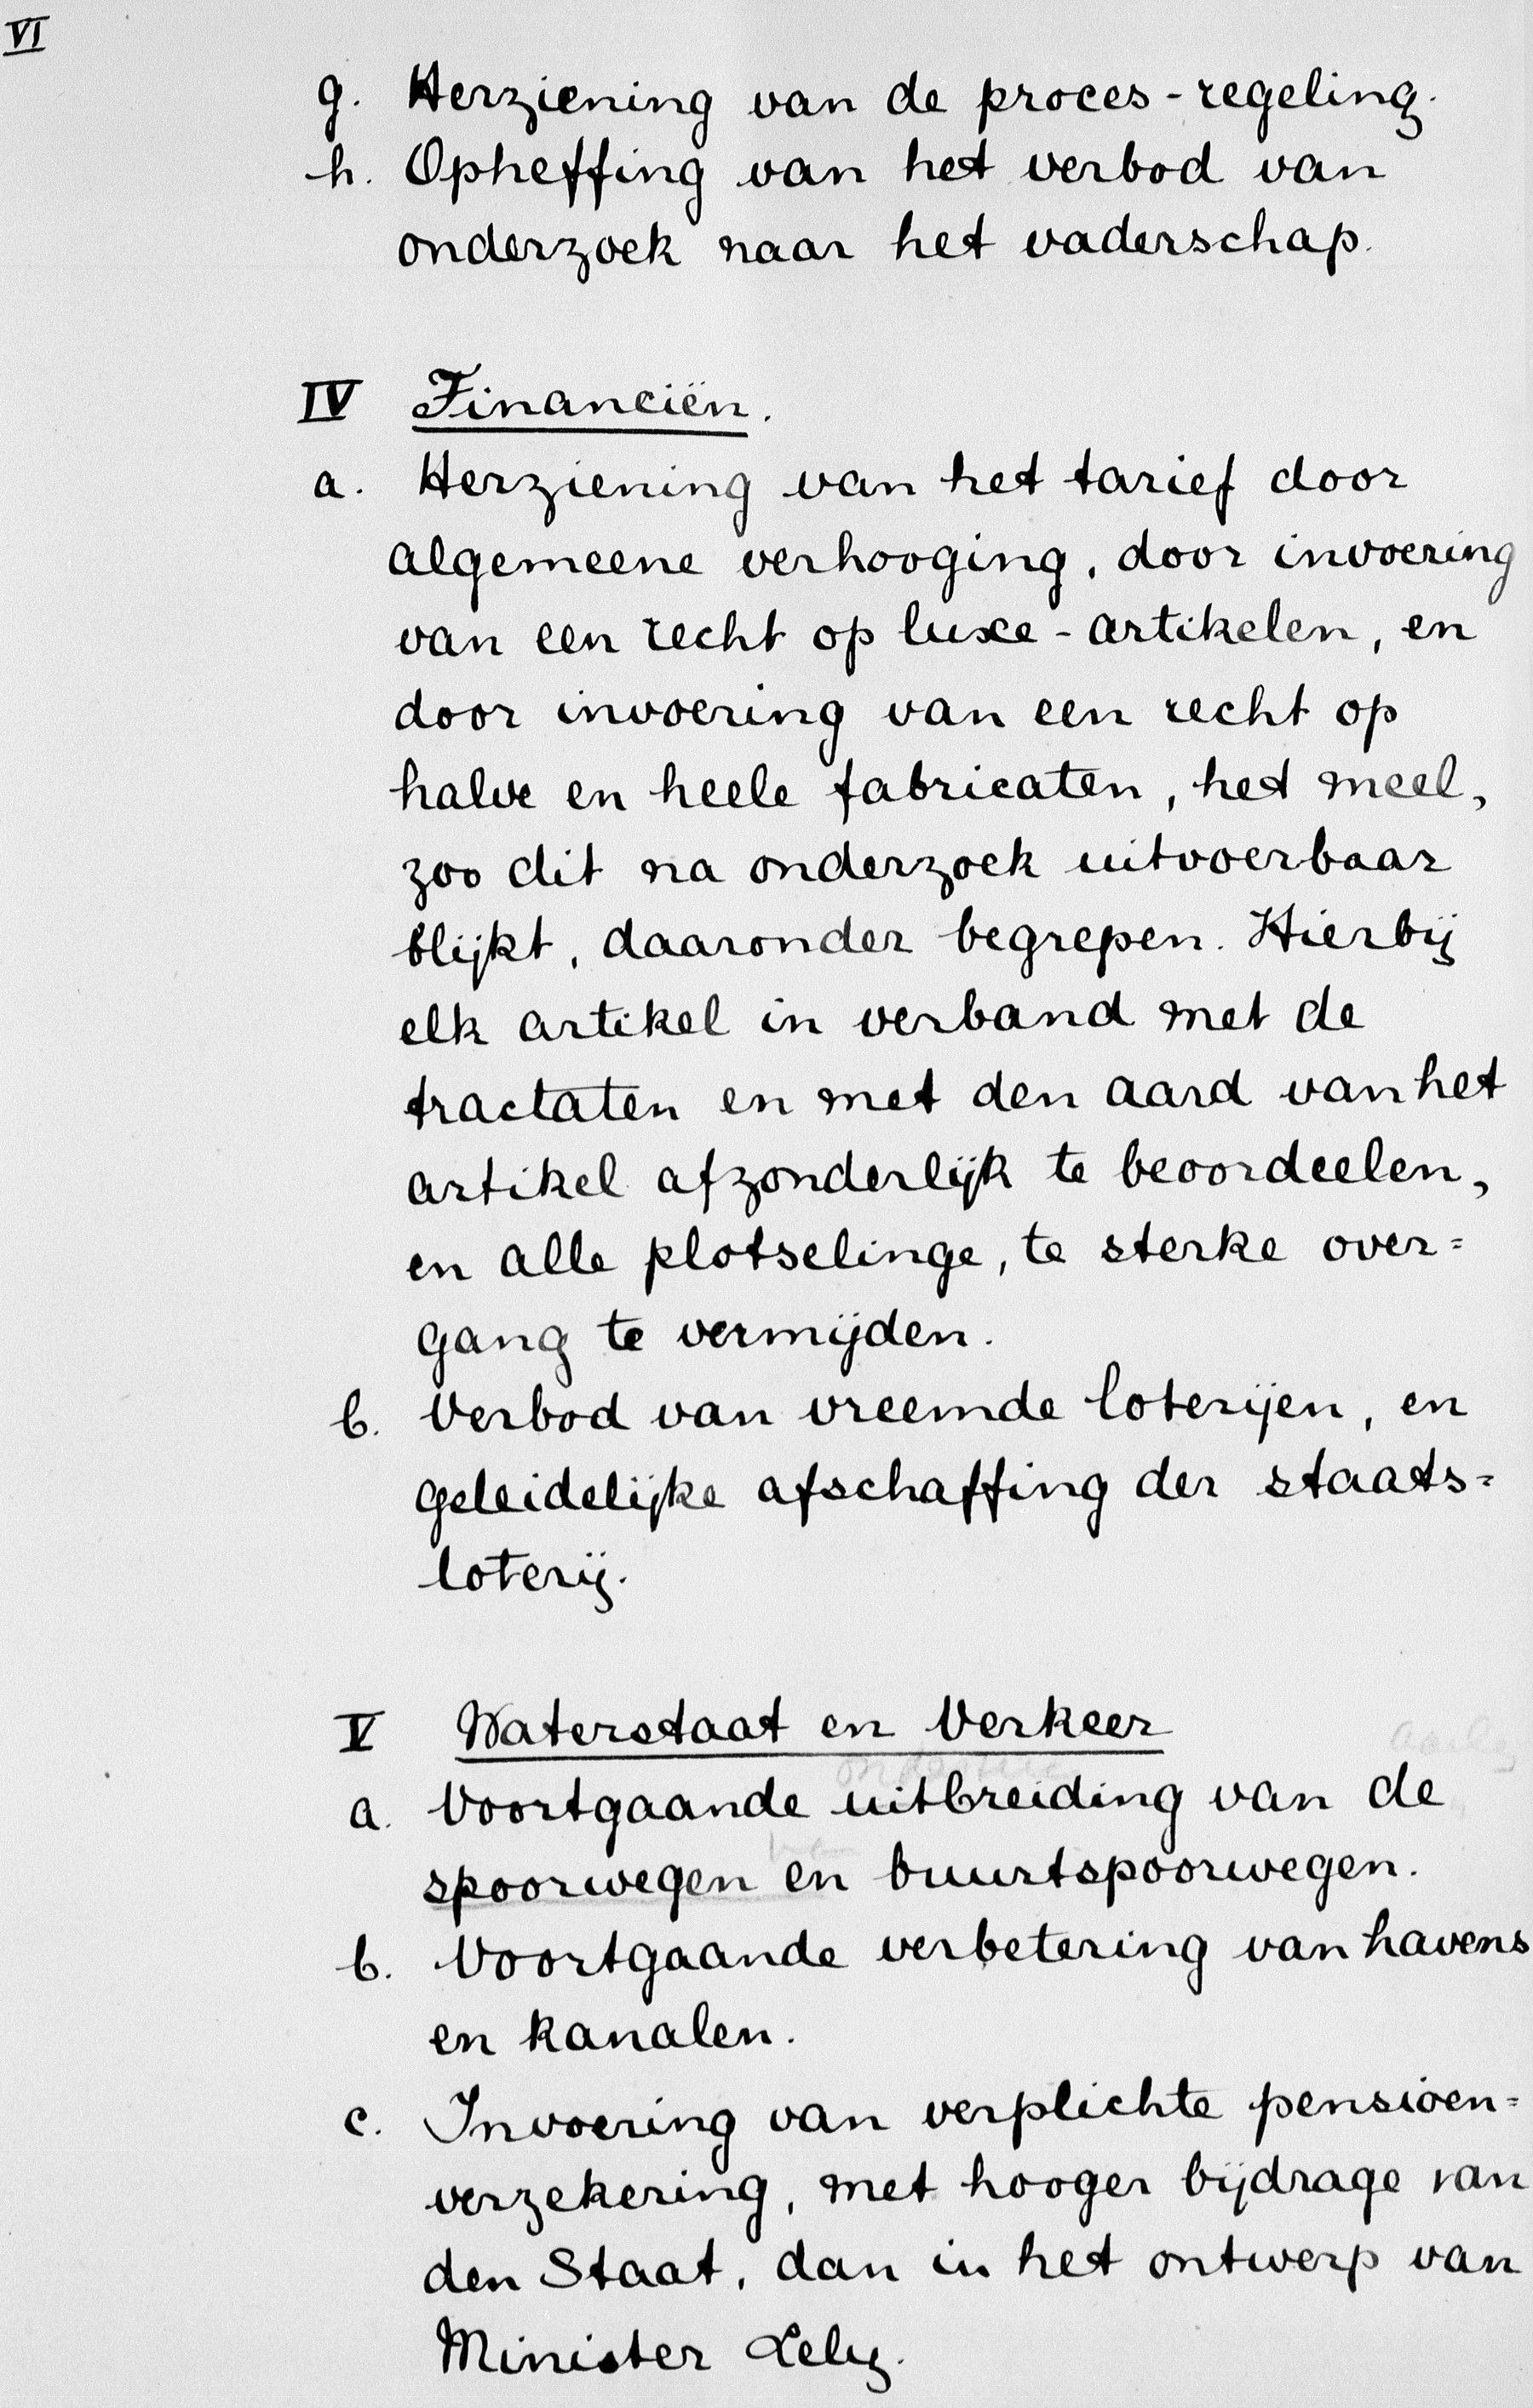 VI
g. Herziening van de proces-regeling.
h. Opheffing van het verbod van
onderzoek naar het vaderschap.
IV Financiën.
a. Herziening van het tarief door
algemeene verhooging, door invoering
van een recht op luxe-artikelen, en
door invoering van een recht op
halve en heele fabricaten, het meel,
zoo dit na onderzoek uitvoerbaar
blijkt, daaronder begrepen. Hierbij
elk artikel in verband met de
tractaten en met den aard van het
artikel afzonderlijk te beoordeelen,
en alle plotselinge, te sterke over=
gang te vermijden.
b. Verbod van vreemde loterijen, en
geleidelijke afschaffing der staats=
loterij.
V Waterstaat en Verkeer
a. Voortgaande uitbreiding van de
spoorwegen en buurtspoorwegen.
b. Voortgaande verbetering van havens
en kanalen.
c. Invoering van verplichte pensioen=
verzekering, met hooger bijdrage van
den Staat, dan in het ontwerp van
Minister Lely.